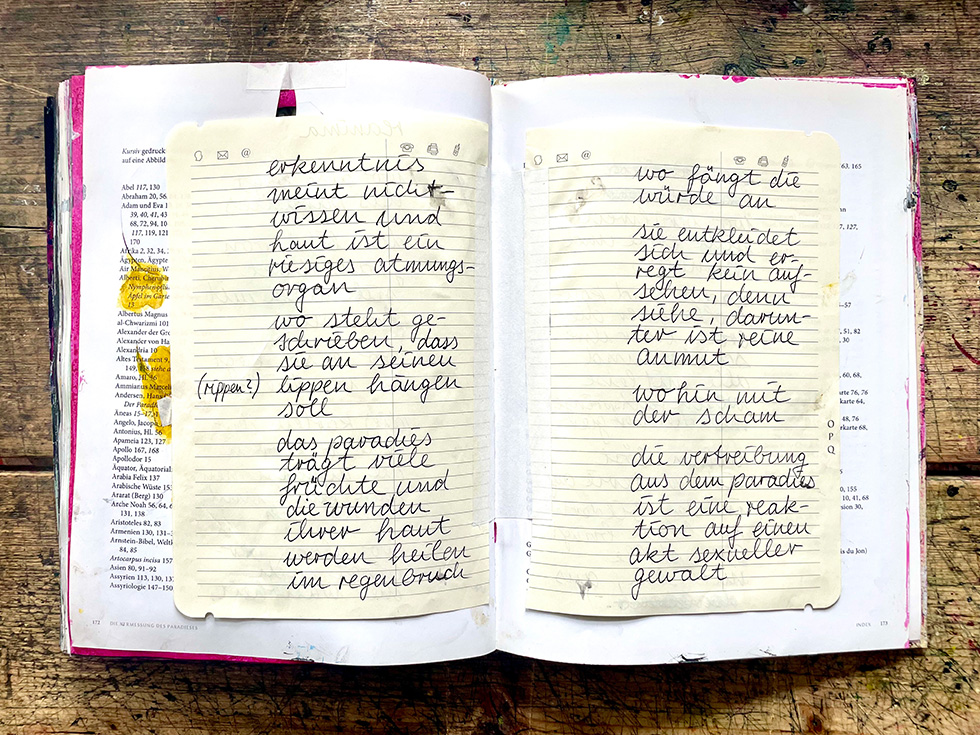 Kursiv gedruck
auf eine Abbild
Abel 117, 130
Abraham 20, 56
Adam und Eva 1
39, 40, 41, 43
68, 72, 94, 10
117, 119, 121
170
Afrika 2, 32, 34,
Ägypten, Ägypte
Air Mauritius, W
Alberti, Cherubi
Nymphenpflu
Äpfel im Garte
13
Albertus Magnus
al-Chwarizmi 101
Alexander der Gr
Alexander von Ha
Alexandria 10
Altes Testament 9,
149, 158 siehe a
Amaro, Hl. 56
Ammianus Marcel
Andersen, Hans
Der Parad
Äneas 15–17,
Angelo, Jacopo
Antonius, Hl. 56
Apameia 123, 127
Apollo 167, 168
Apollodor 15
Äquator, Äquatorial
Arabia Felix 137
Arabische Wüste 15
Ararat (Berg) 130
Arche Noah 56, 64, 6
131, 138
Aristoteles 82, 83
Armenien 130, 131–
Arnstein-Bibel, Weltk
84, 85
Artocarpus incisa 157
Asien 80, 91–92
Assyrien 113, 130, 13
Assyriologie 147–150
172 DIE VERMESSUNG DES PARADIESES
reanima
@
erkenntnis
meint nicht-
wissen und
haut ist ein
riesiges atmungs-
organ
wo steht ge-
schrieben, dass
sie an seinen
(rippen?) lippen hängen
soll
das paradies
trägt viele
früchte und
die wunden
ihrer haut
werden heilen
im regenbruch
@
wo fängt die
würde an
sie entkleidet
sich und er-
regt kein auf-
sehen, denn
siehe, darun-
ter ist reine
anmut
wohin mit
der scham
die vertreibung
aus dem paradies
ist eine reak-
tion auf einen
akt sexueller
gewalt
63, 165
7, 127,
–57
51, 82
30
60, 68,
karte 76, 76
karte 64,
48, 76
karte 68,
O
P
Q
90, 155
10, 41, 68
sion 30,
is du Jon)
G
G
INDEX 173